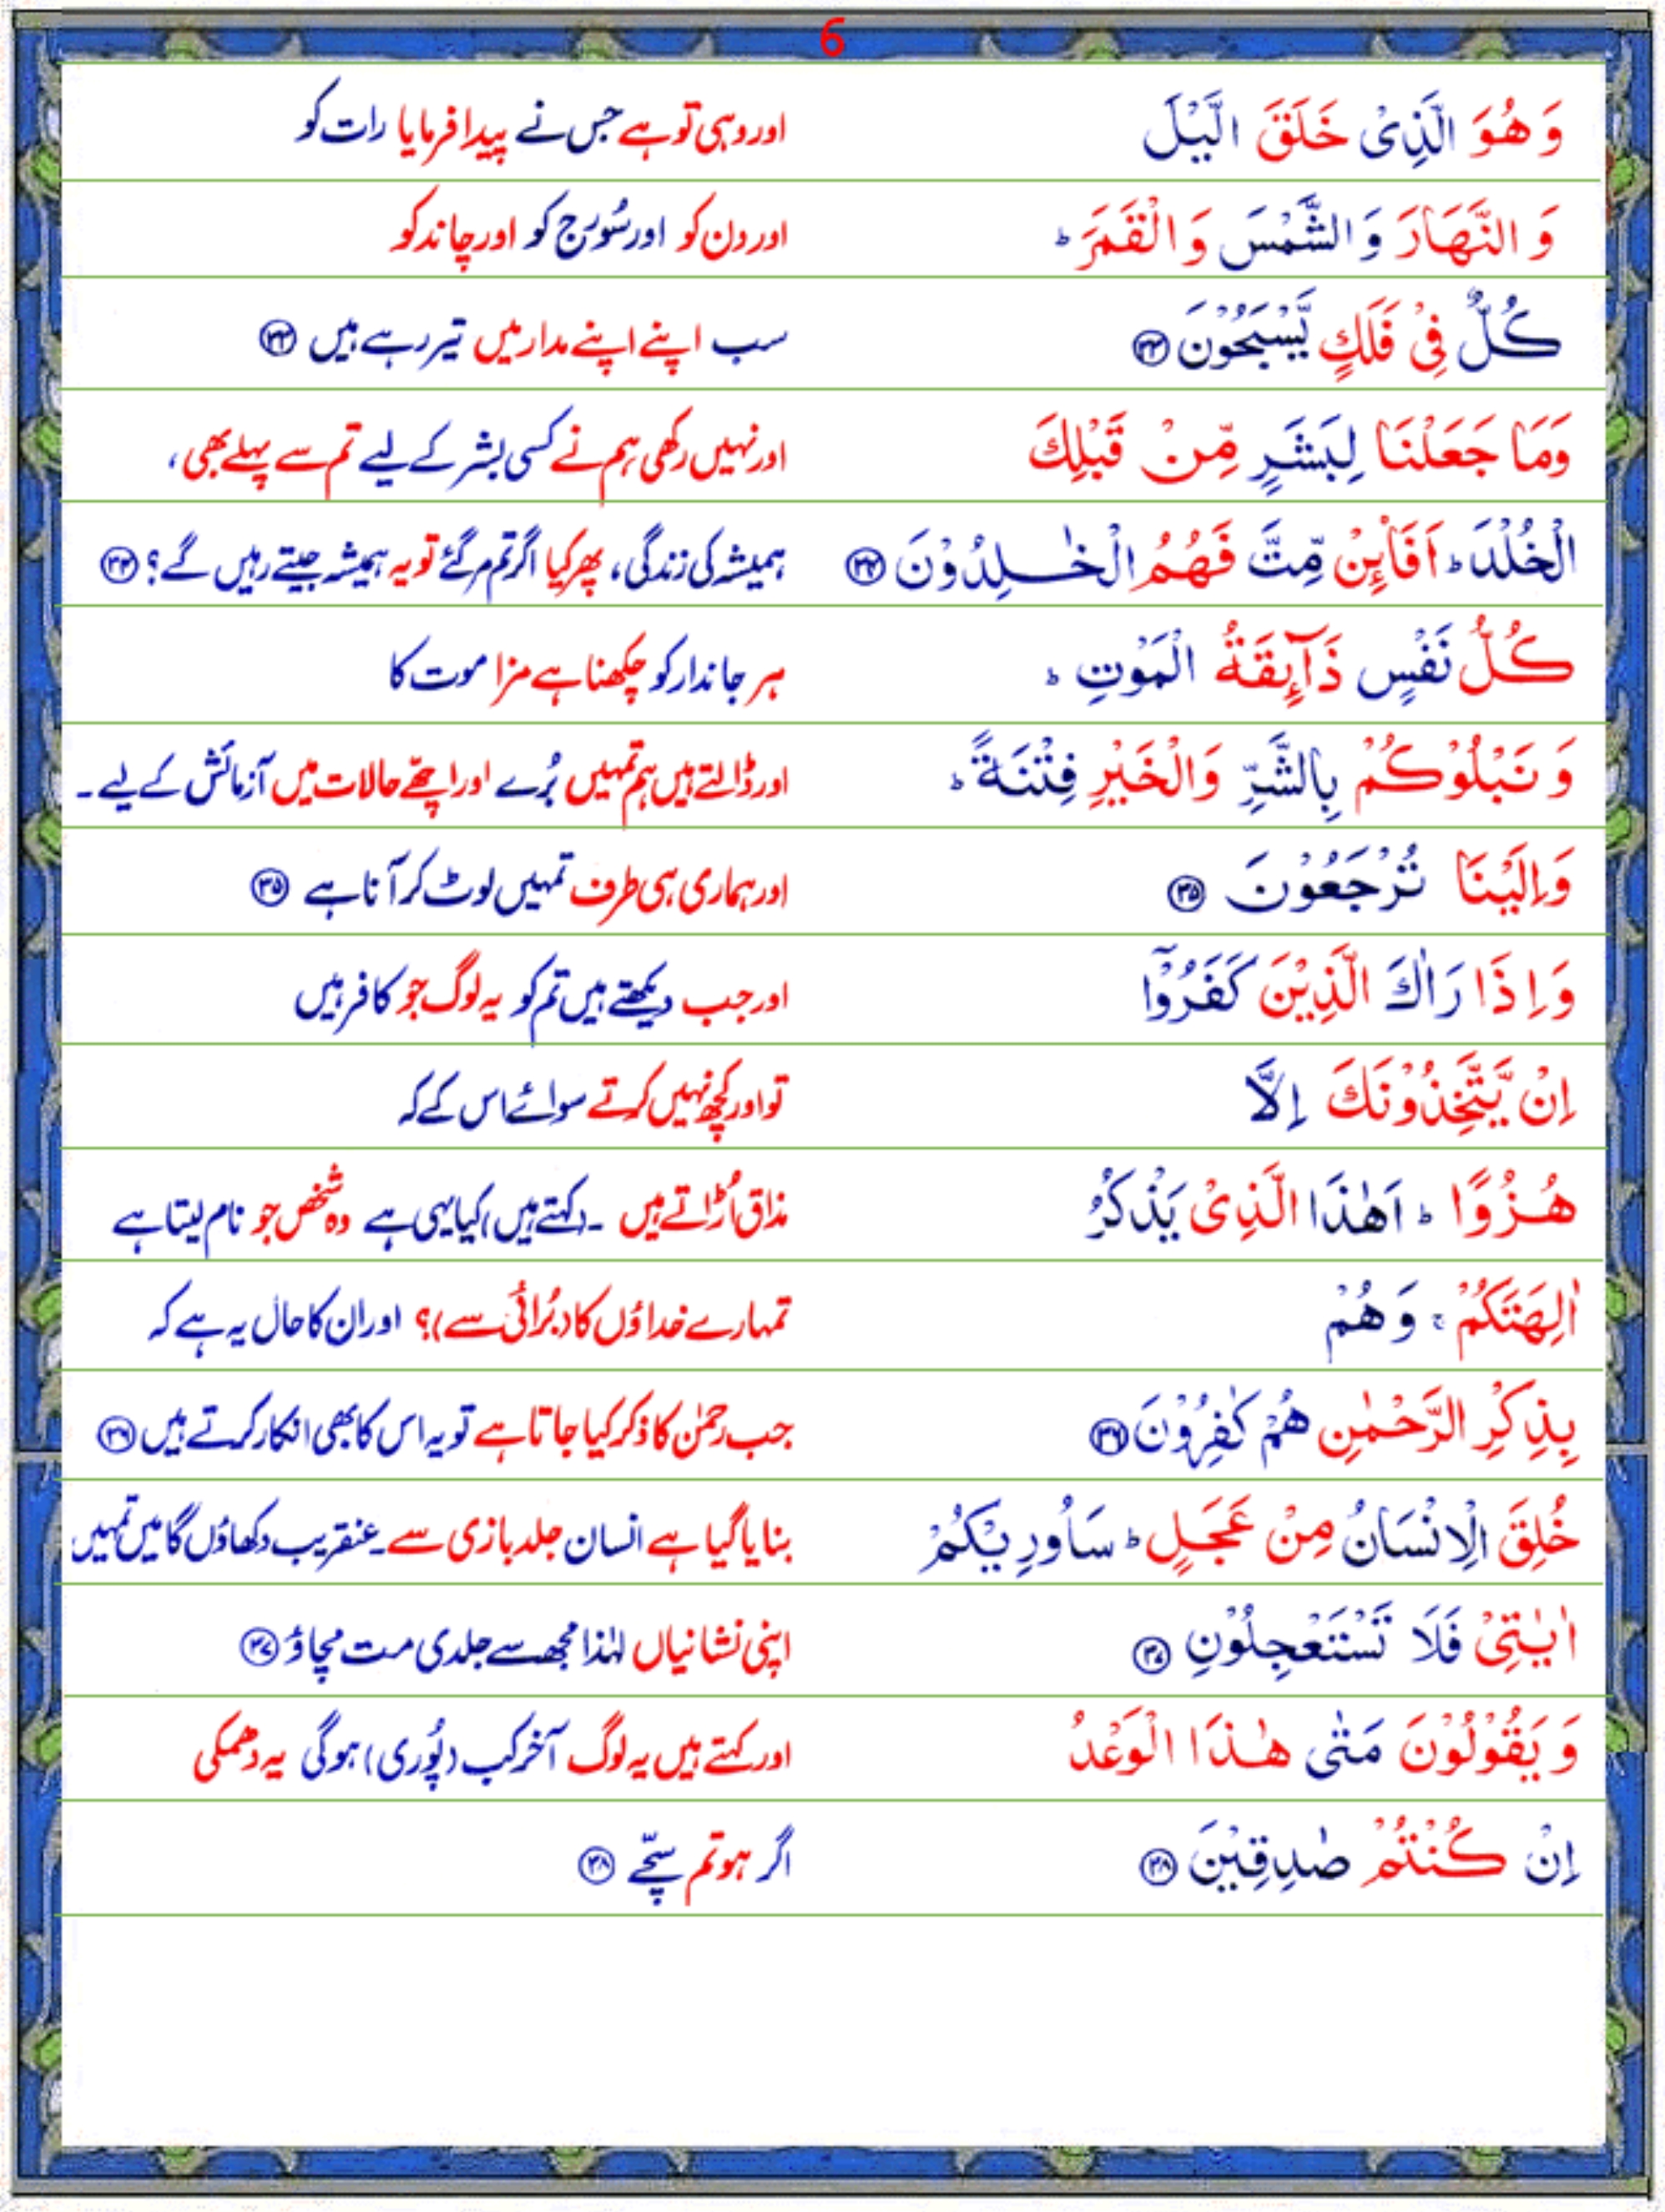 6
وَ هُوَ الَّذِیْ خَلَقَ الَّیْلَ اور وہی تو ہے جس نے پیدا فرمایا رات کو
وَ النَّهَارَ وَ الشَّمْسَ وَ الْقَمَرَ ؕ اور دن کو اور سُورج کو اور چاند کو
كُلٌّ فِیْ فَلَكٍ یَّسْبَحُوْنَ ۝۳۳ سب اپنے اپنے مدار میں تیر رہے ہیں ۝۳۳
وَمَا جَعَلْنَا لِبَشَرٍ مِّنْ قَبْلِكَ اور نہیں رکھی ہم نے کسی بشر کے لیے تم سے پہلے بھی،
الْخُلْدَ ؕ اَفَا۠ئِنْ مِّتَّ فَهُمُ الْخٰلِدُوْنَ ۝۳۴ ہمیشہ کی زندگی، پھر کیا اگر تم مر گئے تو یہ ہمیشہ جیتے رہیں گے؟ ۝۳۴
كُلُّ نَفْسٍ ذَآىِٕقَةُ الْمَوْتِ ؕ ہر جاندار کو چکھنا ہے مزا موت کا
وَ نَبْلُوْكُمْ بِالشَّرِّ وَالْخَیْرِ فِتْنَةً ؕ اور ڈالتے ہیں ہم تمہیں بُرے اور اچھّے حالات میں آزمائش کے لیے ۔
وَاِلَیْنَا تُرْجَعُوْنَ ۝۳۵ اور ہماری ہی طرف تمہیں لوٹ کر آنا ہے ۝۳۵
وَ اِذَا رَاٰكَ الَّذِیْنَ كَفَرُوْۤا اور جب دیکھتے ہیں تم کو یہ لوگ جو کافر ہیں
اِنْ یَّتَّخِذُوْنَكَ اِلَّا تو اور کچھ نہیں کرتے سوائے اس کے کہ
هُزُوًا ؕ اَهٰذَا الَّذِیْ یَذْكُرُ مذاق اُڑاتے ہیں ۔ (کہتے ہیں) کیا یہی ہے وہ شخص جو نام لیتا ہے
اٰلِهَتَكُمْ ۚ وَ هُمْ تمہارے خداؤں کا (بُرائی سے)؟ اور ان کا حال یہ ہے کہ
بِذِكْرِ الرَّحْمٰنِ هُمْ كٰفِرُوْنَ ۝۳۶ جب رحمٰن کا ذکر کیا جاتا ہے تو یہ اس کا بھی انکار کرتے ہیں ۝۳۶
خُلِقَ الْاِنْسَانُ مِنْ عَجَلٍ ؕ سَاُورِیْكُمْ بنایا گیا ہے انسان جلد بازی سے ۔ عنقریب دکھاؤں گا میں تمہیں
اٰیٰتِیْ فَلَا تَسْتَعْجِلُوْنِ ۝۳۷ اپنی نشانیاں لہٰذا مجھ سے جلدی مت مچاؤ ۝۳۷
وَ یَقُوْلُوْنَ مَتٰی هٰذَا الْوَعْدُ اور کہتے ہیں یہ لوگ آخر کب (پُوری) ہوگی یہ دھمکی
اِنْ كُنْتُمْ صٰدِقِیْنَ ۝۳۸ اگر ہو تم سچّے ۝۳۸